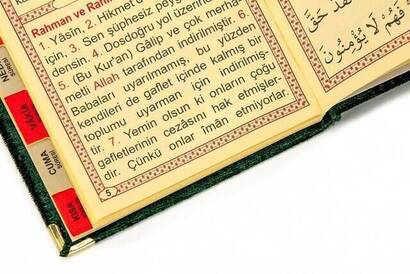 Rahman ve Rah
1. Yâsîn. 2. Hikmet d
için, 3. Sen şüphesiz peyg
densin. 4. Dosdoğru yol üzerin
5. (Bu Kur'an) Gâlip ve çok merha-
metli Allah tarafından indirilmiştir. 6.
Babaları uyarılmamış, bu yüzden
kendileri de gaflet içinde kalmış bir
toplumu uyarman için indirilmiş-
tir. 7. Yemin olsun ki onların çoğu
gafletlerinin cezasını hak etmişler-
dir. Çünkü onlar îmân etmiyorlar.
5
VAKIA
CUMA
KISA
حَقَّ
فَهُمْ لَا يُؤْمِنُونَ